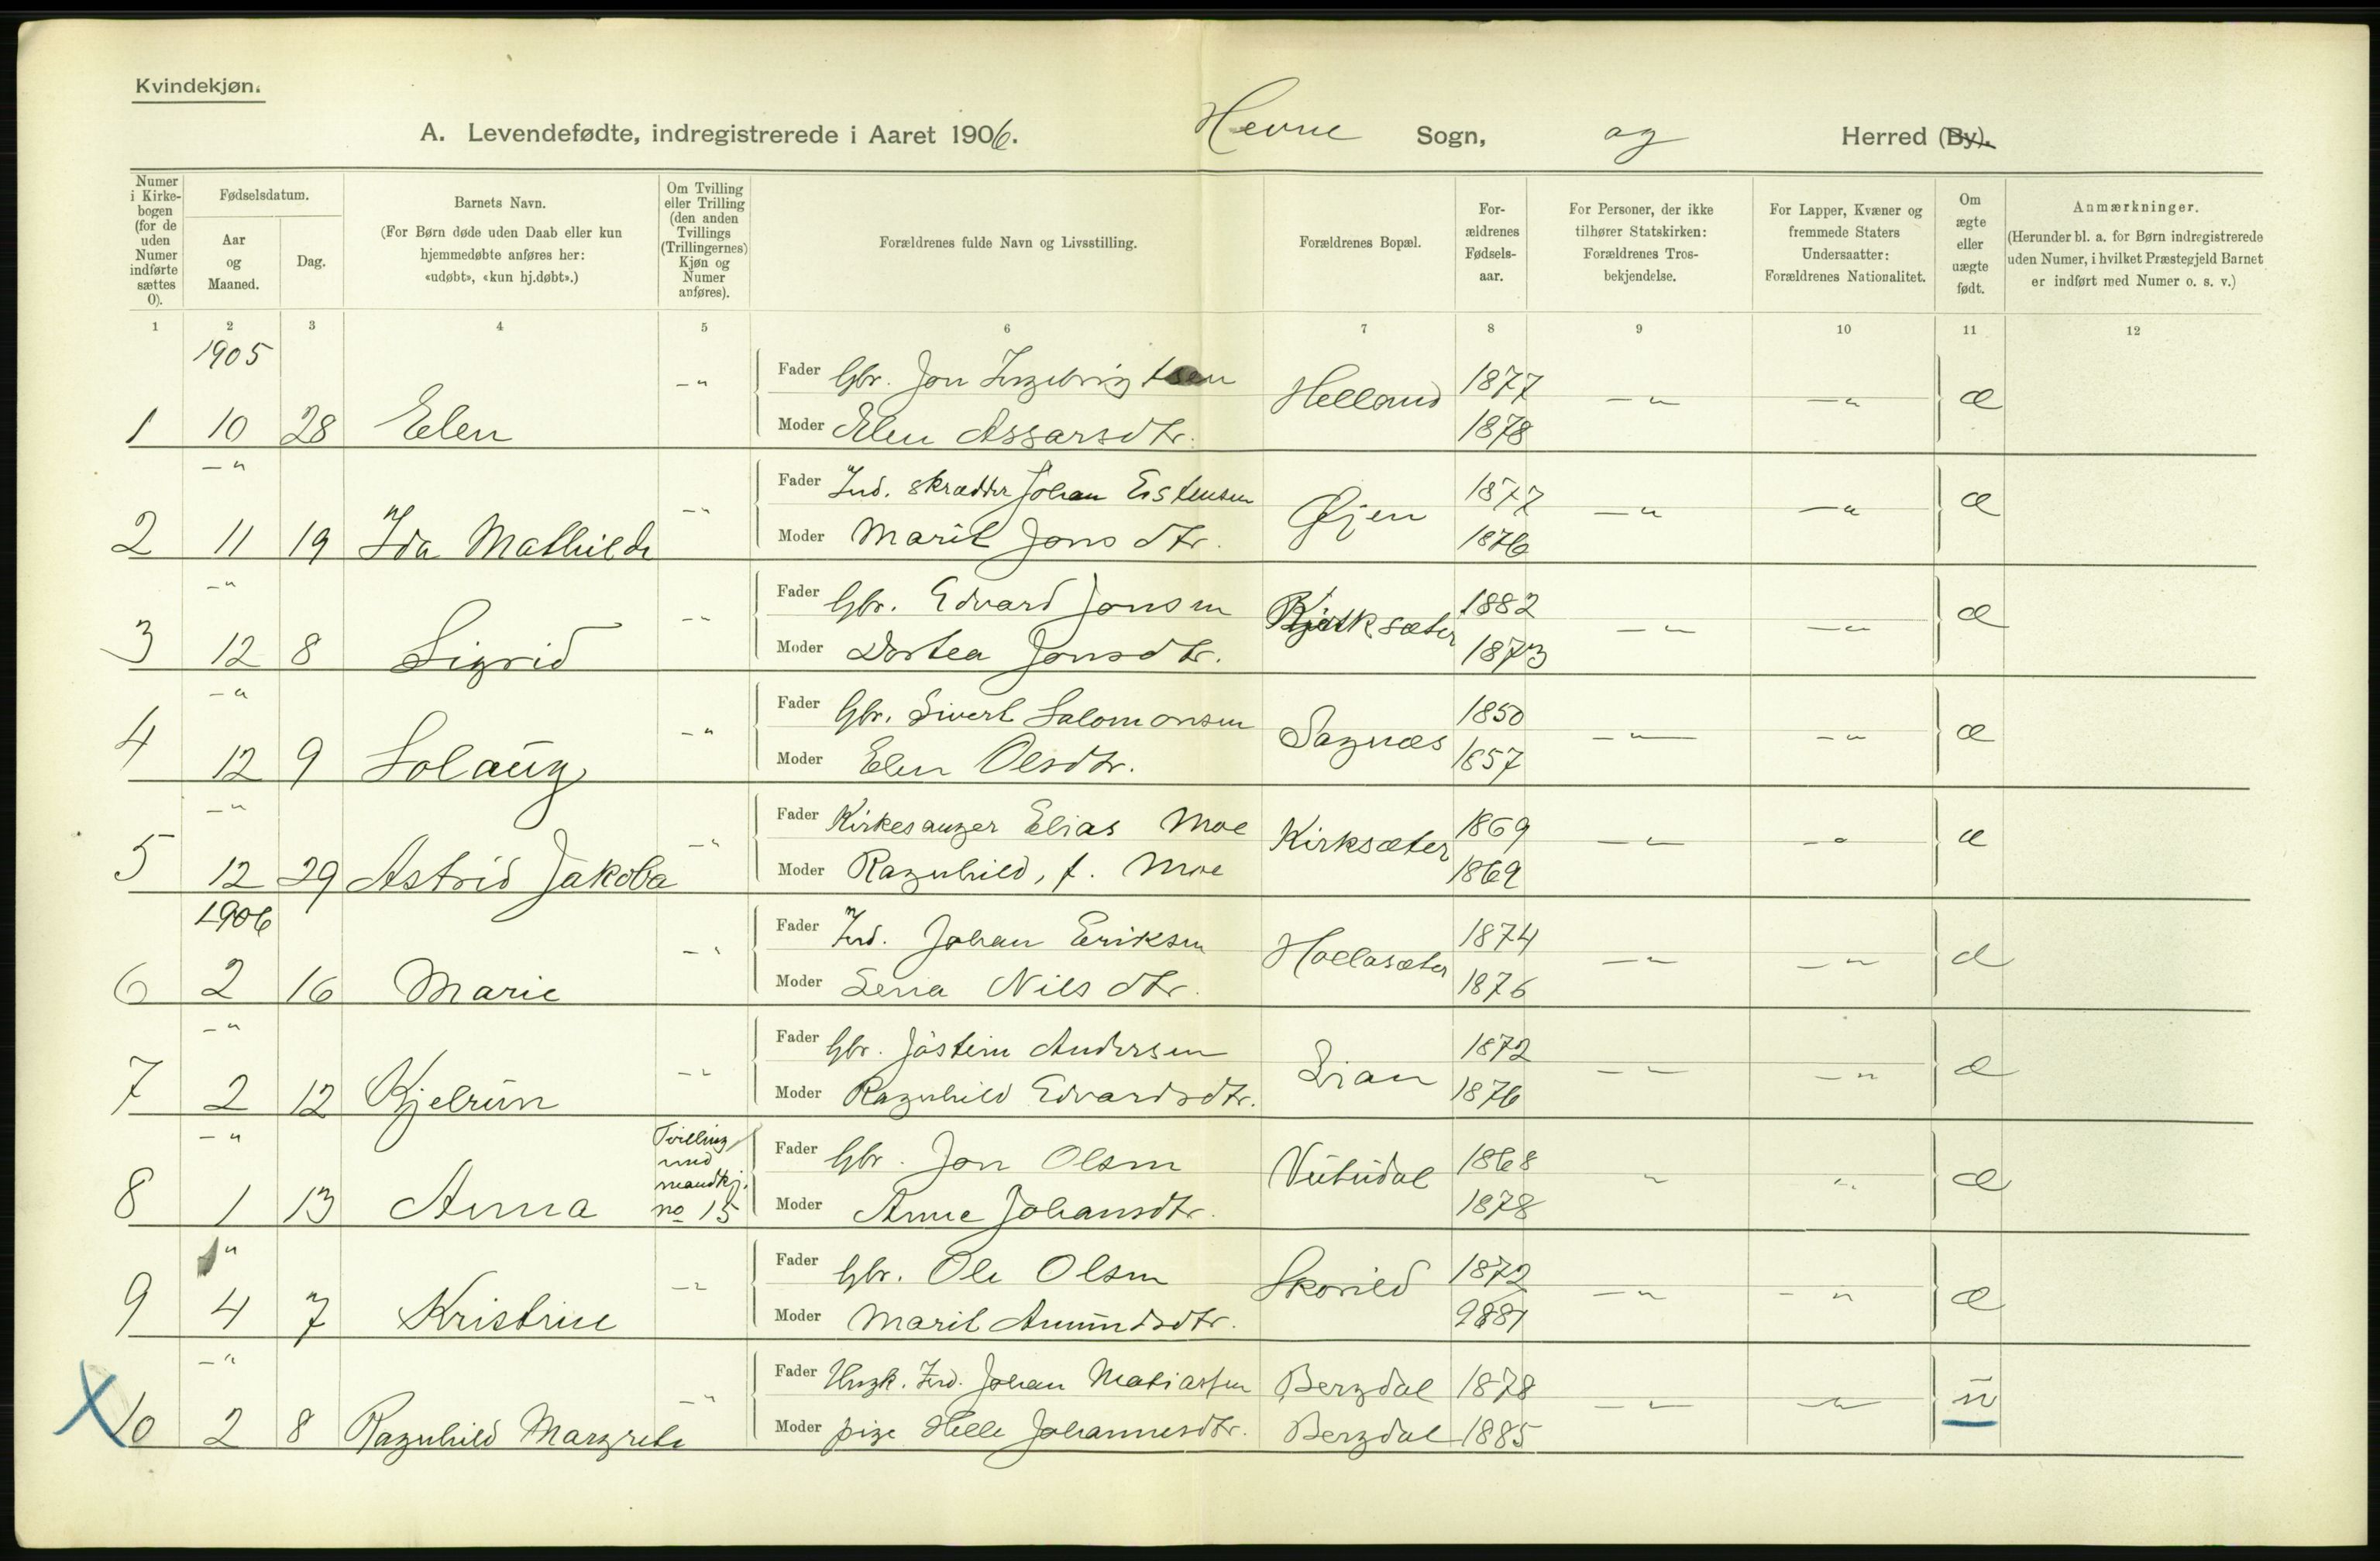 Kvindekjøn.
A. Levendefødte, indregistrerede i Aaret 1906. Hevne Sogn, og Herred (By).
Numer i Kirkebogen (for de uden Numer indførte sættes 0).
Fødselsdatum.
Aar og Maaned.
Dag.
Barnets Navn.
(For Børn døde uden Daab eller kun hjemmedøbte anføres her: «udøbt», «kun hj.døbt».)
Om Tvilling eller Trilling (den anden Tvillings (Trillingernes) Kjøn og Numer anføres).
Forældrenes fulde Navn og Livsstilling.
Forældrenes Bopæl.
Forældrenes Fødselsaar.
For Personer, der ikke tilhører Statskirken: Forældrenes Trosbekjendelse.
For Lapper, Kvæner og fremmede Staters Undersaatter: Forældrenes Nationalitet.
Om ægte eller uægte født.
Anmærkninger.
(Herunder bl. a. for Børn indregistrerede uden Numer, i hvilket Præstegjeld Barnet er indført med Numer o. s. v.)
1 2 3 4 5 6 7 8 9 10 11 12
1905
Fader Gbr. Jon Ingebrigtsen Helland 1877
1 10 28 Elen -" Moder Elen Assarsdtr. 1878 -"- -"- æ
-"
Fader Ind. skrædder Johan Eistensen Øjen 1877
2 11 19 Ida Mathilde -" Moder Marit Jonsdtr. 1876 -"- -"- æ
-"
Fader Gbr. Edvard Jonsen Kirksæter 1882
3 12 8 Sigrid -" Moder Dortea Jonsdtr. 1873 -"- -"- æ
-"
Fader Gbr. Sivert Salomonsen Sagnæs 1850
4 12 9 Solaug -" Moder Elen Olsdtr. 1857 -"- -"- æ
-"
Fader Kirkesanger Elias Moe Kirksæter 1869
5 12 29 Astrid Jakoba -" Moder Ragnhild, f. Moe 1869 -"- -"- æ
1906
Fader Ind. Johan Eriksen Hollasæter 1874
6 2 16 Marie -" Moder Lena Nilsdtr. 1876 -"- -"- æ
-"
Fader Gbr. Jostein Andersen Lian 1872
7 2 12 Kjelrun -" Moder Ragnhild Edvardsdtr. 1876 -"- -"- æ
-"
Fader Gbr. Jon Olsen Vutudal 1868
8 1 13 Anna Tvilling med mandkj. no 15 Moder Anne Johansdtr. 1878 " " æ
"
Fader Gbr. Ole Olsen Skorild 1872
9 4 7 Kristine -" Moder Marit Amundsdtr. 1881 -"- -"- æ
-"
Fader Ungk. Ind. Johan Matiassen Bergdal 1878
X 10 2 8 Ragnhild Margrete -" Moder pige Helle Johannesdtr. Bergdal 1885 -"- -"- u